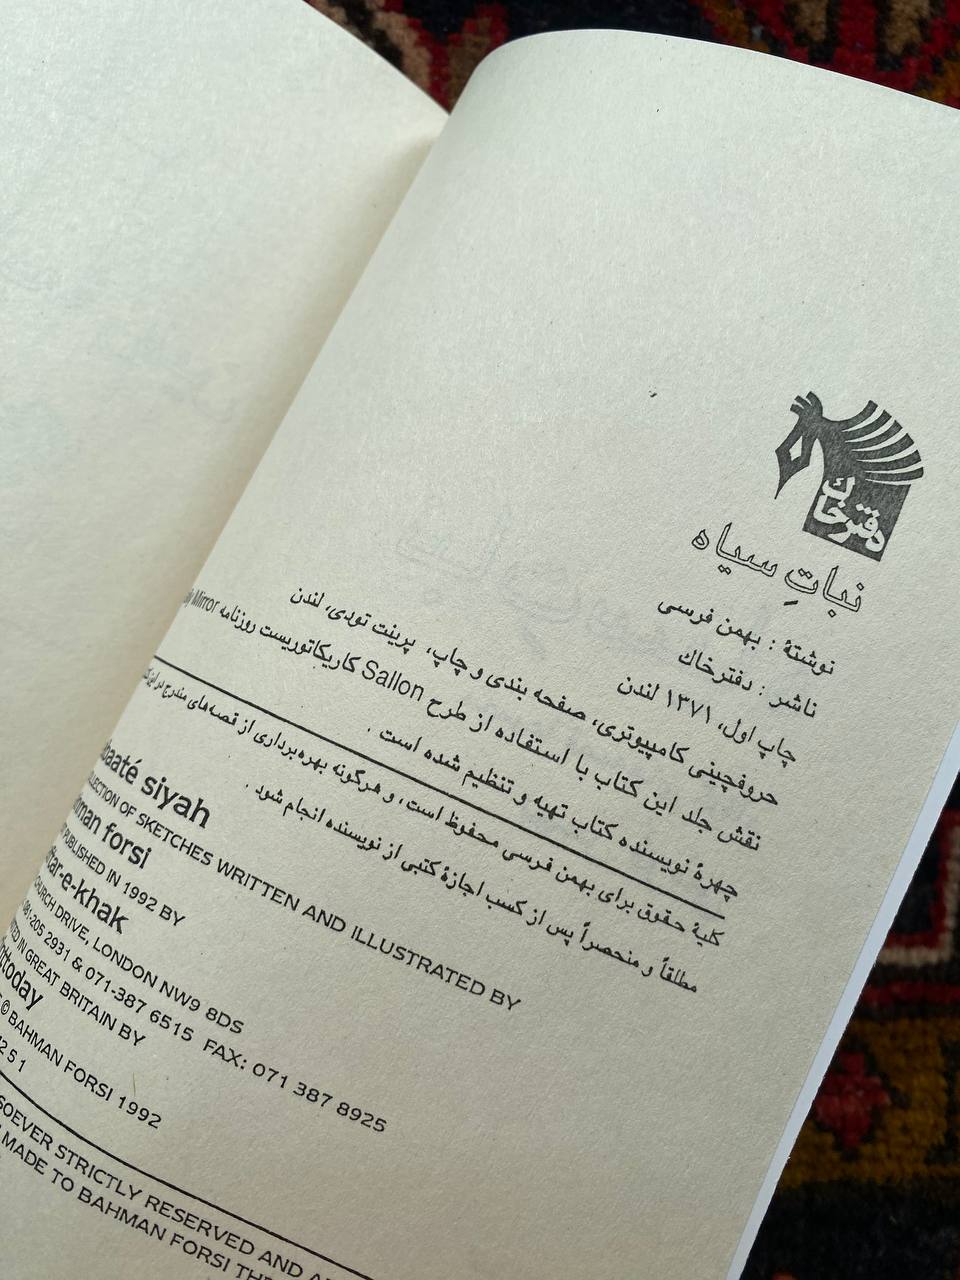 دفترخاك
نباتِ سیاه
نوشتهٔ : بهمن فرسی
ناشر : دفترخاك
چاپ اول، ۱۳۷۱ لندن
حروفچینی کامپیوتری، صفحه بندی و چاپ، پرینت تودی، لندن
نقش جلد این کتاب با استفاده از طرح Sallon کاریکاتوریست روزنامه Mirror
چهرهٔ نویسنده کتاب تهیه و تنظیم شده است .
کلیهٔ حقوق برای بهمن فرسی محفوظ است، و هرگونه بهره‌برداری از قصه‌های مندرج در این
مطلقاً و منحصراً پس از کسب اجازهٔ کتبی از نویسنده انجام شود .
siyah
OF SKETCHES WRITTEN AND ILLUSTRATED BY
forsi
PUBLISHED IN 1992 BY
-e-khak
CHURCH DRIVE, LONDON NW9 8DS
081-205 2931 & 071-387 6515 FAX: 071 387 8925
IN GREAT BRITAIN BY
today
© BAHMAN FORSI 1992
2 5 1
STRICTLY RESERVED AND
MADE TO BAHMAN FORSI